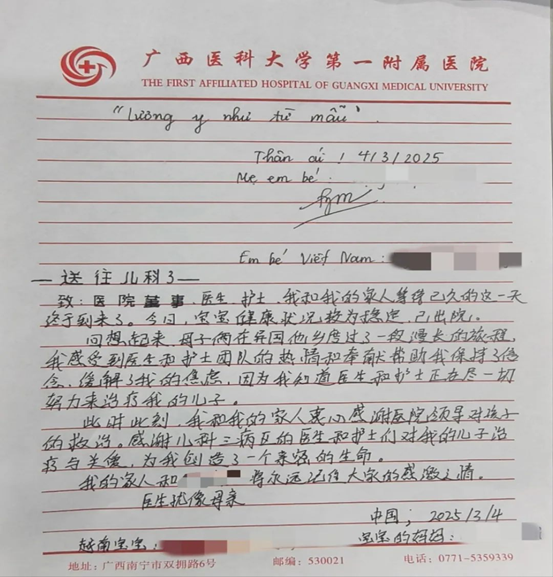 广西医科大学第一附属医院
THE FIRST AFFILIATED HOSPITAL OF GUANGXI MEDICAL UNIVERSITY
"Lương y như từ mẫu".
Thân ái! 4/3/2025
Mẹ em bé:
Em bé Việt Nam:
— 送往儿科3 —
致:医院董事、医生、护士,我和我的家人等待已久的这一天
终于到来了。今日,宝宝健康状况较为稳定,已出院。
回想起来,母子俩在异国他乡度过了一段漫长的旅程,
我感受到医生和护士团队的热情和奉献帮助我保持了信
念,缓解了我的焦虑,因为我知道医生和护士正在尽一切
努力来治疗我的儿子。
此时此刻,我和我的家人衷心感谢医院领导对孩子
的救治。感谢儿科三病区的医生和护士们对我的儿子治
疗与关爱,为我创造了一个来强的生命。
我的家人和 将永远记住大家的感激之情。
医生就像母亲
中国;2025/3/4
越南宝宝: 宝宝的妈妈:
地址:广西南宁市双拥路6号 邮编:530021 电话:0771-5359339